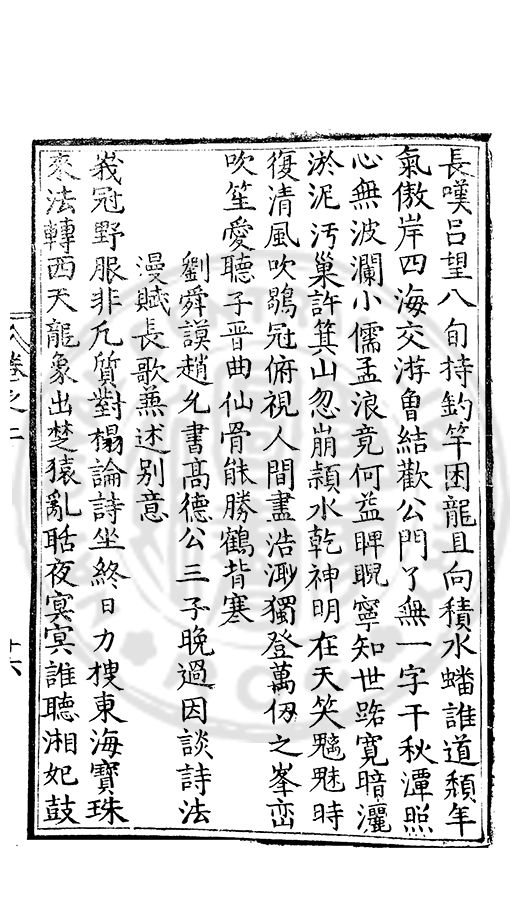 長嘆呂望八旬持釣竿困龍且向積水蟠誰道頽年
氣傲岸四海交游曾結歡公門了無一字干秋潭照
心無波瀾小儒孟浪竟何益睥睨寧知世路寬暗灑
淤泥汚巢許箕山忽崩頴水乾神明在天笑魑魅時
復清風吹鶡冠俯視人間盡浩渺獨登萬仭之峯巒
吹笙愛聽子晉曲仙骨能勝鶴背寒
劉舜謨趙允書髙德公三子晚過因談詩法
漫賦長歌兼述别意
峩冠野服非凡質對榻論詩坐終日力搜東海寶珠
來法轉西天龍象出楚猿亂聒夜寞冥誰聽湘妃鼓
卷之二
十六